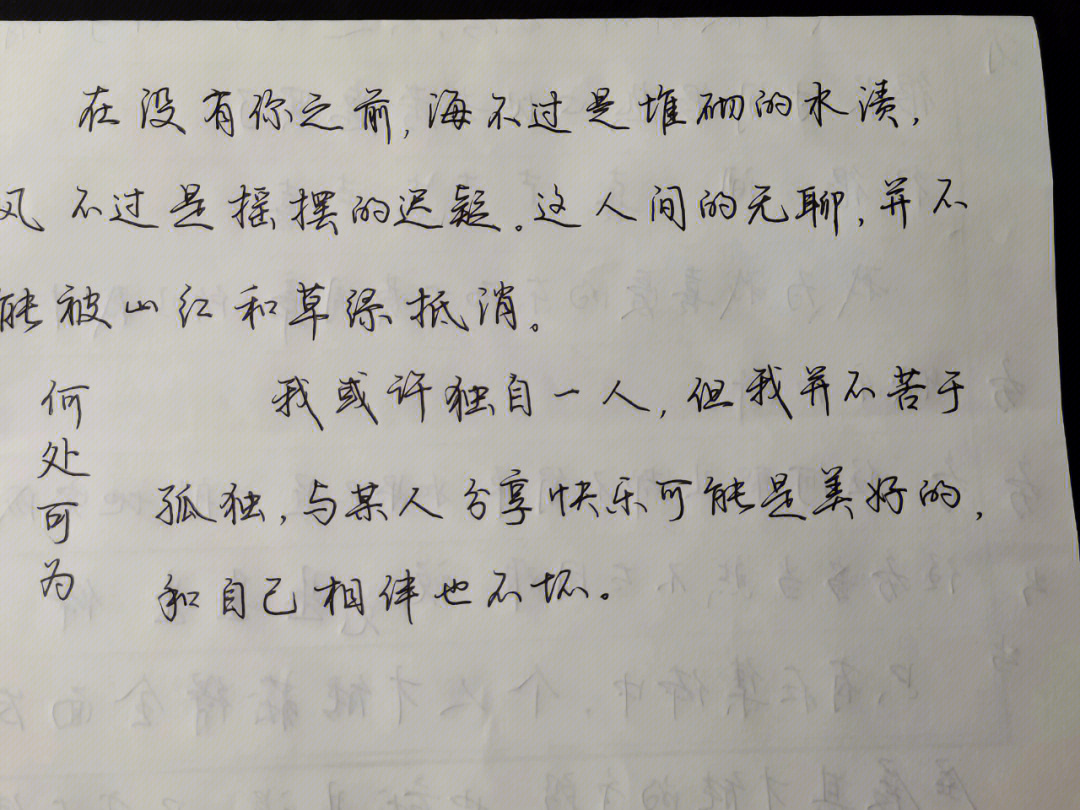 在没有你之前,海不过是堆砌的水渍,
风不过是摇摆的迟疑。这人间的无聊,并不
能被山红和草绿抵消。
我或许独自一人,但我并不苦于
孤独,与某人分享快乐可能是美好的,
和自己相伴也不坏。
何处可为